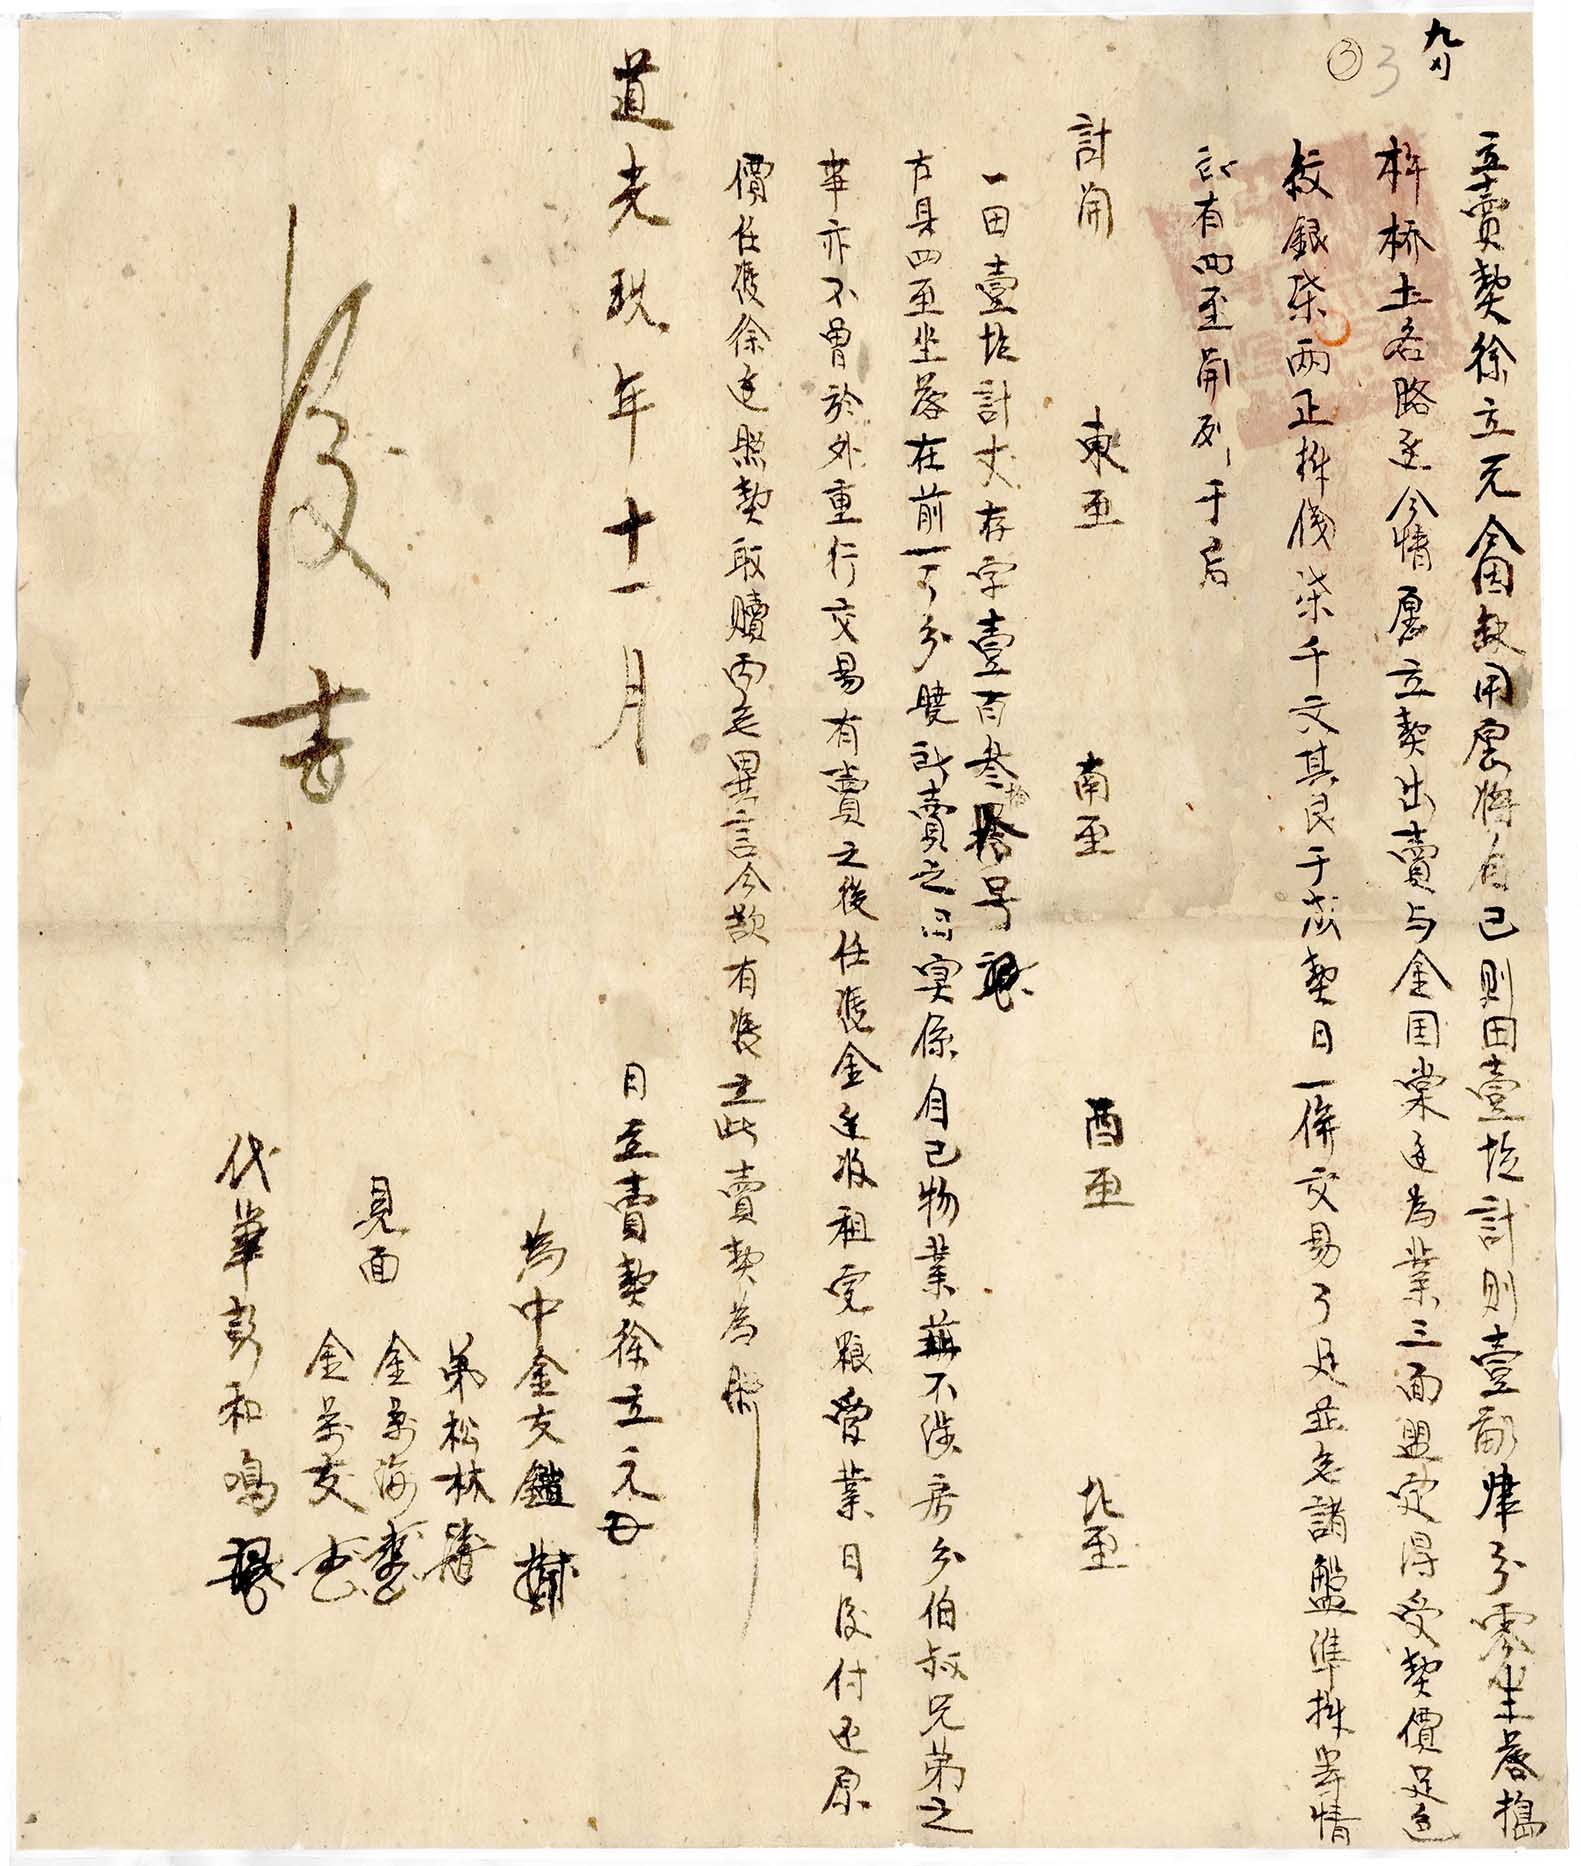 九刈
③ 3
立賣契徐立元今因缺用愿將自己則田壹坵計則壹畝肆分零坐落搗
杵桥土名路迳今情愿立契出賣与金国棠迋为業三面盟定得受契價足色
紋銀柒两正拼伐柒千文其良于成契日一併交易了足並无謮盤準拼等情
所有四至开列于后
計開 東至 南至 酉至 北至
一田壹坵計丈存字壹百叁拾号
右具四至坐落在前一了分曉所賣之田寔係自己物業並不涉房分伯叔兄弟之
事亦不曾於外重行交易有賣之後任慿金迋收租完粮受業日后付还原
價任慿徐迋照契取贖両无異言今欲有凴立此賣契為照
道光玖年十一月 日立賣契徐立元
为中金友鑑
弟松林
見面 金景海
金景友
代筆彭和鳴
後吉